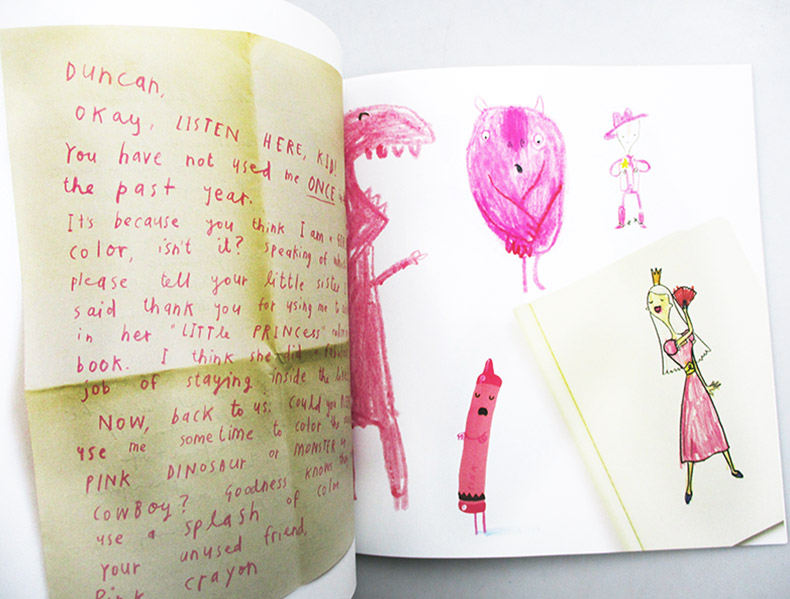 Duncan,
OKay, LISTEN HERE, KID!
You have not used me ONCE
the past year.
It's because you think I am a
color, isn't it? speaking of
please tell your little sister
said thank you for using me to
in her "LITTLE PRINCESS"
book. I think she did
job of staying inside the
Now, back to us. Could you
use me sometime to color the
PINK DINOSAUR or MONSTER or
COWBOY? Goodness knows
use a splash of color
Your unused friend,
Pink crayon